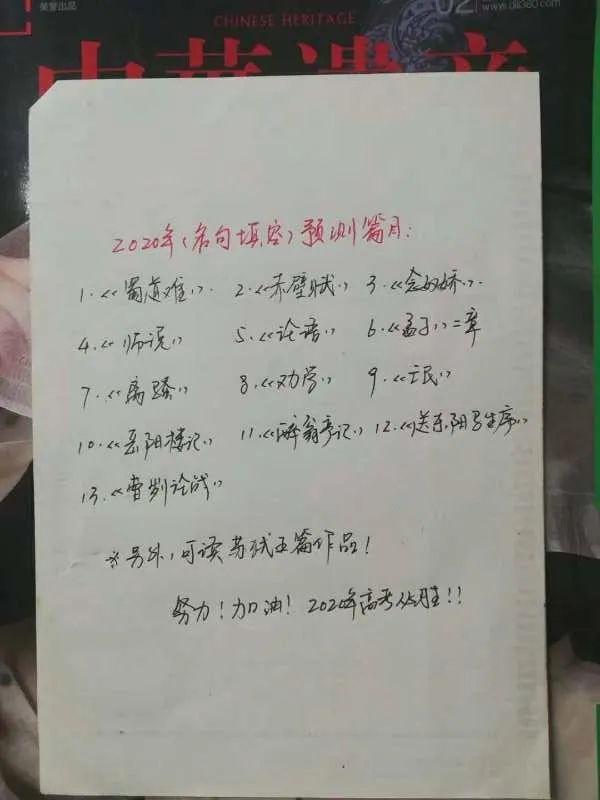 荣誉出品
CHINESE HERITAGE
02
www.dili360.com
中华遗产
2020年(名句填空)预测篇目:
1.《蜀道难》. 2.《赤壁赋》 3.《念奴娇》.
4.《师说》 5.《论语》 6.《孟子》二章
7.《离骚》 8.《劝学》 9.《氓》
10.《岳阳楼记》 11.《醉翁亭记》 12.《送东阳马生序》
13.《曹刿论战》
※另外,可读苏轼五篇作品!
努力!加油!2020年高考必胜!!